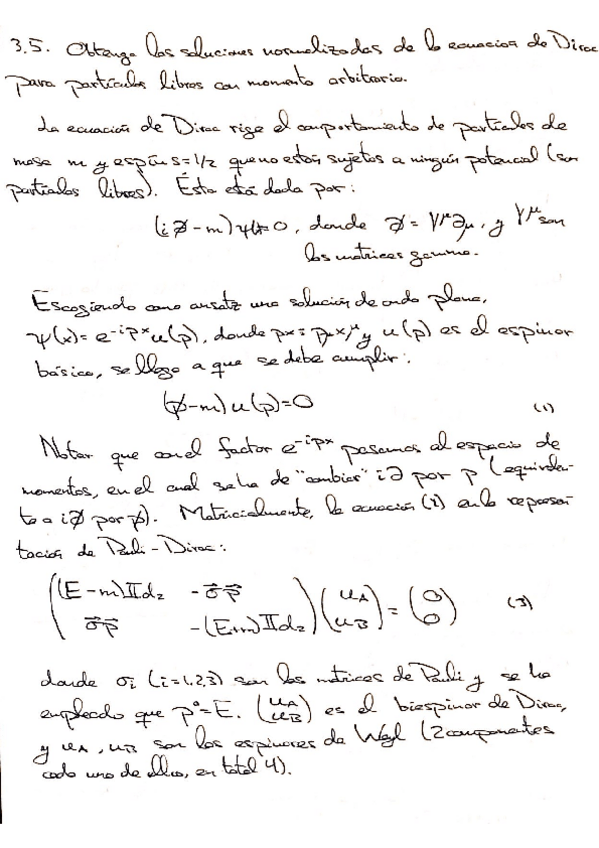 3.5. Obtenga las soluciones normalizadas de la ecuación de Dirac
para partículas libres con momento arbitrario.
La ecuación de Dirac rige el comportamiento de partículas de
masa m y espín s=1/2 que no estén sujetos a ningún potencial (son
partículas libres). Ésta está dada por:
(i∂̸-m)ψ(x)=0, donde ∂̸=γ^μ∂_μ, y γ^μ son
las matrices gamma.
Escogiendo como ansatz una solución de onda plana,
ψ(x)=e^{-ipx}u(p), donde px=p_μx^μ y u(p) es el espinor
básico, se llega a que se debe cumplir:
(p̸-m)u(p)=0 (1)
Notar que con el factor e^{-ipx} pasamos al espacio de
momentos, en el cual se ha de "cambiar" i∂ por p (equivalen-
te a i∂̸ por p̸). Matricialmente, la ecuación (1) en la represen-
tación de Pauli-Dirac:
((E-m)𝕀d₂ -σ⃗p⃗) (u_A) = (0)
(σ⃗p⃗ -(E+m)𝕀d₂) (u_B) (0) (3)
donde σᵢ (i=1,2,3) son las matrices de Pauli y se ha
empleado que p⁰=E. (u_A u_B) es el biespinor de Dirac,
y u_A, u_B son los espinores de Weyl (2 componentes
cada uno de ellos, en total 4).